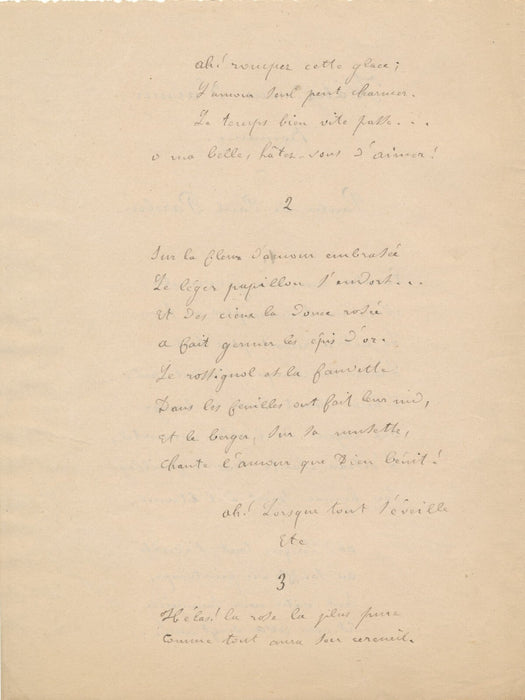 ah! rompez cette glace;
L'amour seul peut charmer.
Le temps bien vite passe...
o ma belle, hâtez-vous d'aimer!
2
Sur la fleur d'amour embrasée
Le léger papillon s'endort...
Et des cieux la douce rosée
a fait germer les épis d'or.
Le rossignol et la fauvette
Dans les feuilles ont fait leur nid,
Et le berger, sur sa musette,
chante l'amour que Dieu bénit!
ah! Lorsque tout s'éveille
Etc
3
Hélas! la rose la plus pure
comme tout aura son cercueil.